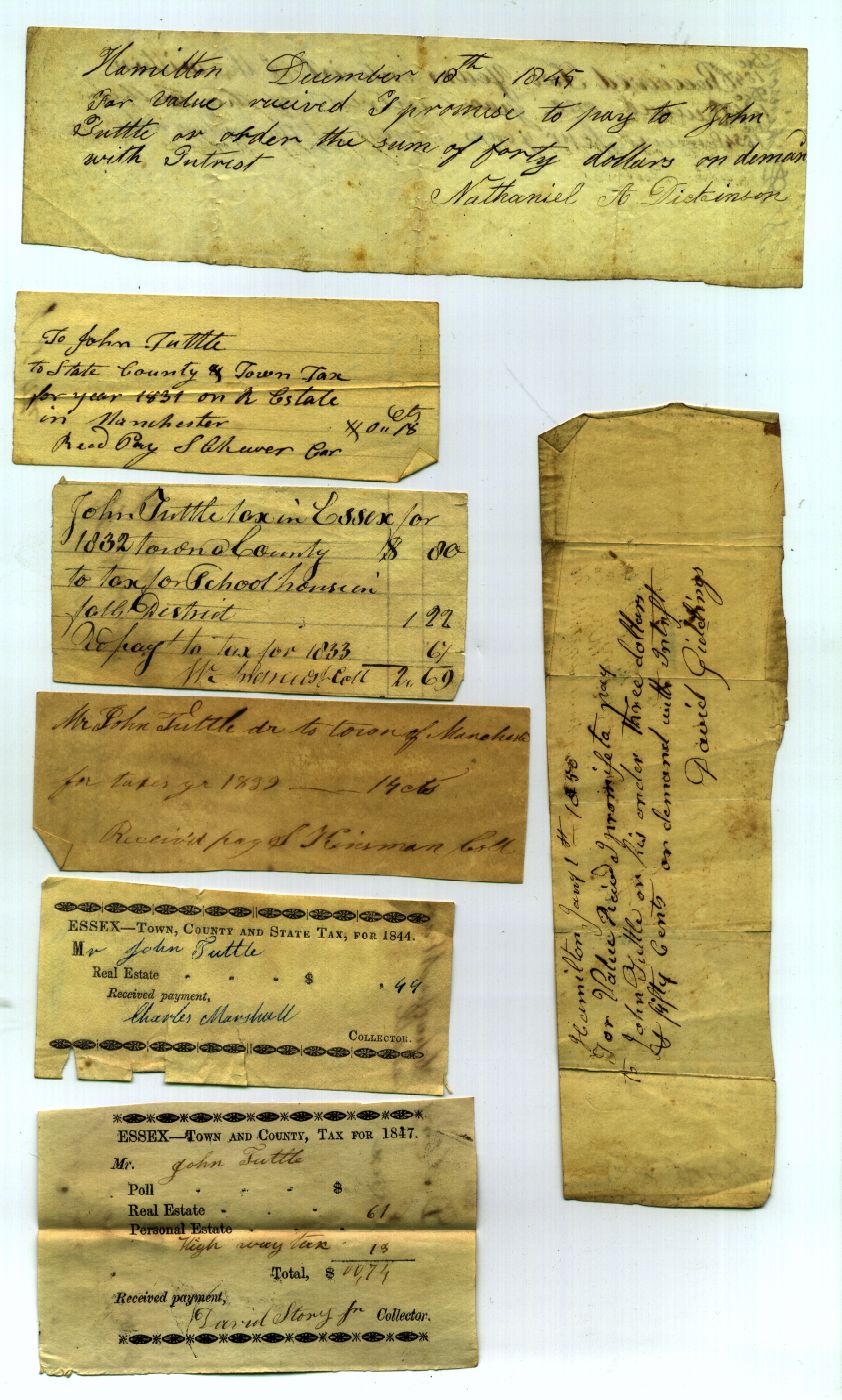 Hamilton December 18th 1845
For value recived I promise to pay to John
Tuttle or order the sum of forty dollars on deman
with Intrest
Nathaniel A Dickinson
To John Tuttle
to State County & Town Tax
for year 1831 on R Estate
in Manchester $0" 18 cts
Recd Pay S Cheever Cor
John Tuttle tax in Essex for
1832 town & County $ 80
to tax for School house in
District 1 22
Rd payt to tax for 1833 67
Wm Coll 2,69
Mr John Tuttle dr to town of Manchester
for taxes yr 1839 — 14 cts
Received pay S Kinsman Coll
ESSEX—TOWN, COUNTY AND STATE TAX, FOR 1844.
Mr John Tuttle
Real Estate - - - $ .49
Received payment,
Charles Marshall
COLLECTOR.
ESSEX—TOWN AND COUNTY, TAX FOR 1847.
Mr. John Tuttle
Poll - - - - $
Real Estate - - - 61
Personal Estate - - -
High way tax 13
Total, $ 00,74
Received payment,
David Story Jr Collector.
Hamilton Jany 1st 1850
For Value Recievd I promise to pay
to John Tuttle or his order three dollars
& fifty Cents on demand with Intrest
David Giddings